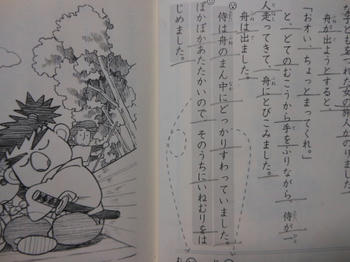 な子どもをつれた女の旅人がのりました。
舟が出ようとすると、
「おおい、ちょっとまってくれ。」
と、どてのむこうから手をふりながら、侍が一
人走ってきて、舟にとびこみました。
舟は出ました。
侍は舟のまん中にどっかりすわっていました。
ぽかぽかあたたかいので、そのうちにいねむりをは
じめました。